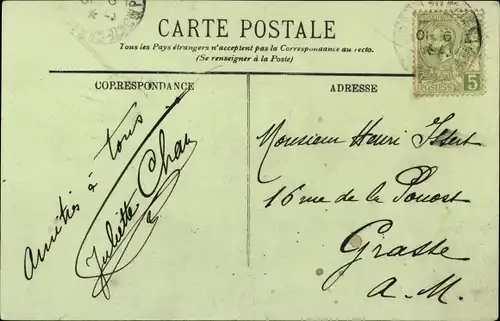 CARTE POSTALE
Tous les Pays étrangers n'acceptent pas la Correspondance au recto.
(Se renseigner à la Poste)
CORRESPONDANCE
ADRESSE
Amitiés à tous
Juliette
Monsieur Henri
16 rue de la
Grasse
A.M.
5